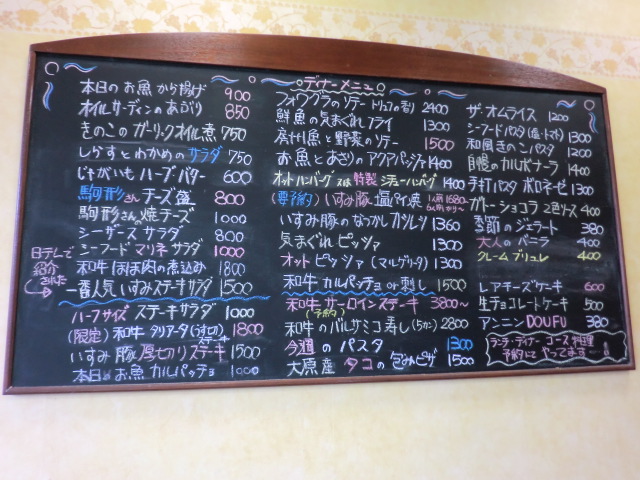 ディナーメニュー
本日のお魚から揚げ 900
オイルサーディンのあぶり 850
きのこのガーリックオイル煮 750
しらすとわかめのサラダ 750
じゃがいもハーブバター 600
駒形さんチーズ盛 800
駒形さんの焼チーズ 1000
シーザーズサラダ 800
シーフードマリネサラダ 1000
和牛ほほ肉の煮込み 1800
一番人気いすみステーキサラダ 1500
日テレで紹介された
ハーフサイズ ステーキサラダ 1000
(限定)和牛タリアータ(すずき) 1800
いすみ豚厚切りステーキ 1500
本日のお魚カルパッチョ 1000
フォワグラのソテー トリュフの香り 2400
鮮魚の気まぐれフライ 1300
房州魚と野菜のソテー 1500
お魚とあさりのアクアパッツァ 1400
オットハンバーグ又は特製 ハンバーグ 1400
(要予約)いすみ豚塩パイ焼 1人前1680-
いすみ豚のなつかしカツレツ 1360
気まぐれピッツァ 1300
オットピッツァ(マルゲリータ) 1300
和牛カルパッチョor刺し 1500
和牛サーロインステーキ 3800~
(予約)
和牛のバルサミコ寿し(5かん) 2800
今週のパスタ 1300
大原産タコの包みピザ 1500
ザ・オムライス 1200
シーフードパスタ(塩・トマト) 1300
和風きのこパスタ 1200
自慢のカルボナーラ 1400
手打パスタボロネーゼ 1300
ガトーショコラ2色ソース 400
季節のジェラート 380
大人のバニラ 400
クレームブリュレ 400
レアチーズケーキ 600
生チョコレートケーキ 500
アンニンDOUFU 380
ランチ・ディナーコース料理
予約にてやってます